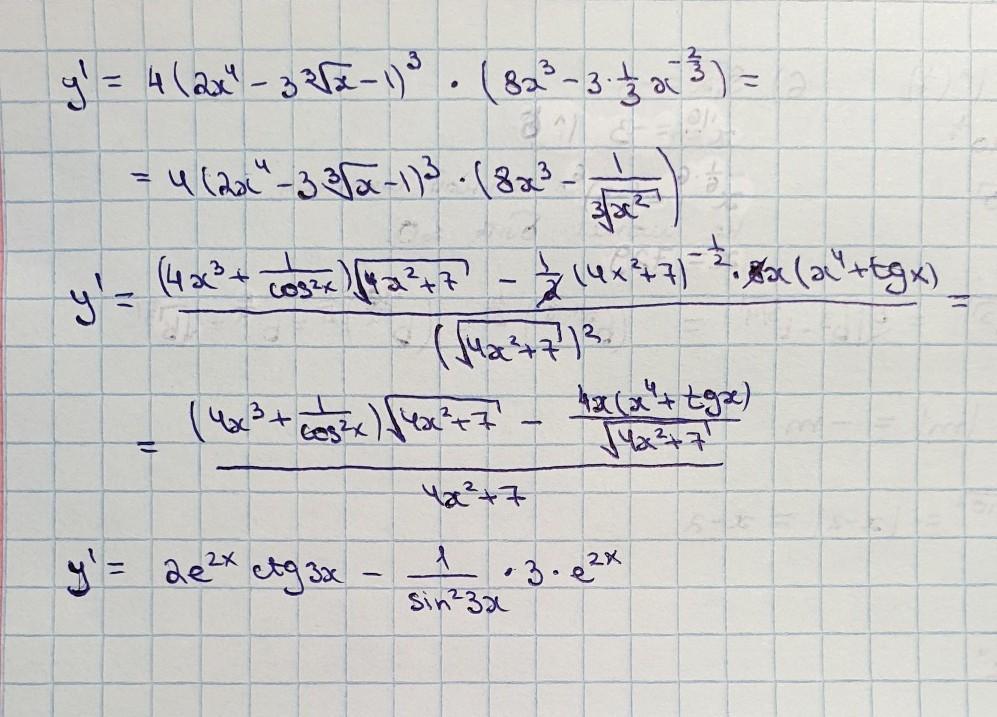 y' = 4(2x⁴ - 3∛x - 1)³ · (8x³ - 3·1/3 x^(-2/3)) =
= 4(2x⁴ - 3∛x - 1)³ · (8x³ - 1/∛(x²))
y' = ((4x³ + 1/cos²x)√(4x²+7) - 1/2 (4x²+7)^(-1/2) · 8x(x⁴+tgx)) / (√(4x²+7))² =
= ((4x³ + 1/cos²x)√(4x²+7) - 4x(x⁴+tgx)/√(4x²+7)) / (4x²+7)
y' = 2e^(2x) ctg3x - 1/sin²3x · 3 · e^(2x)